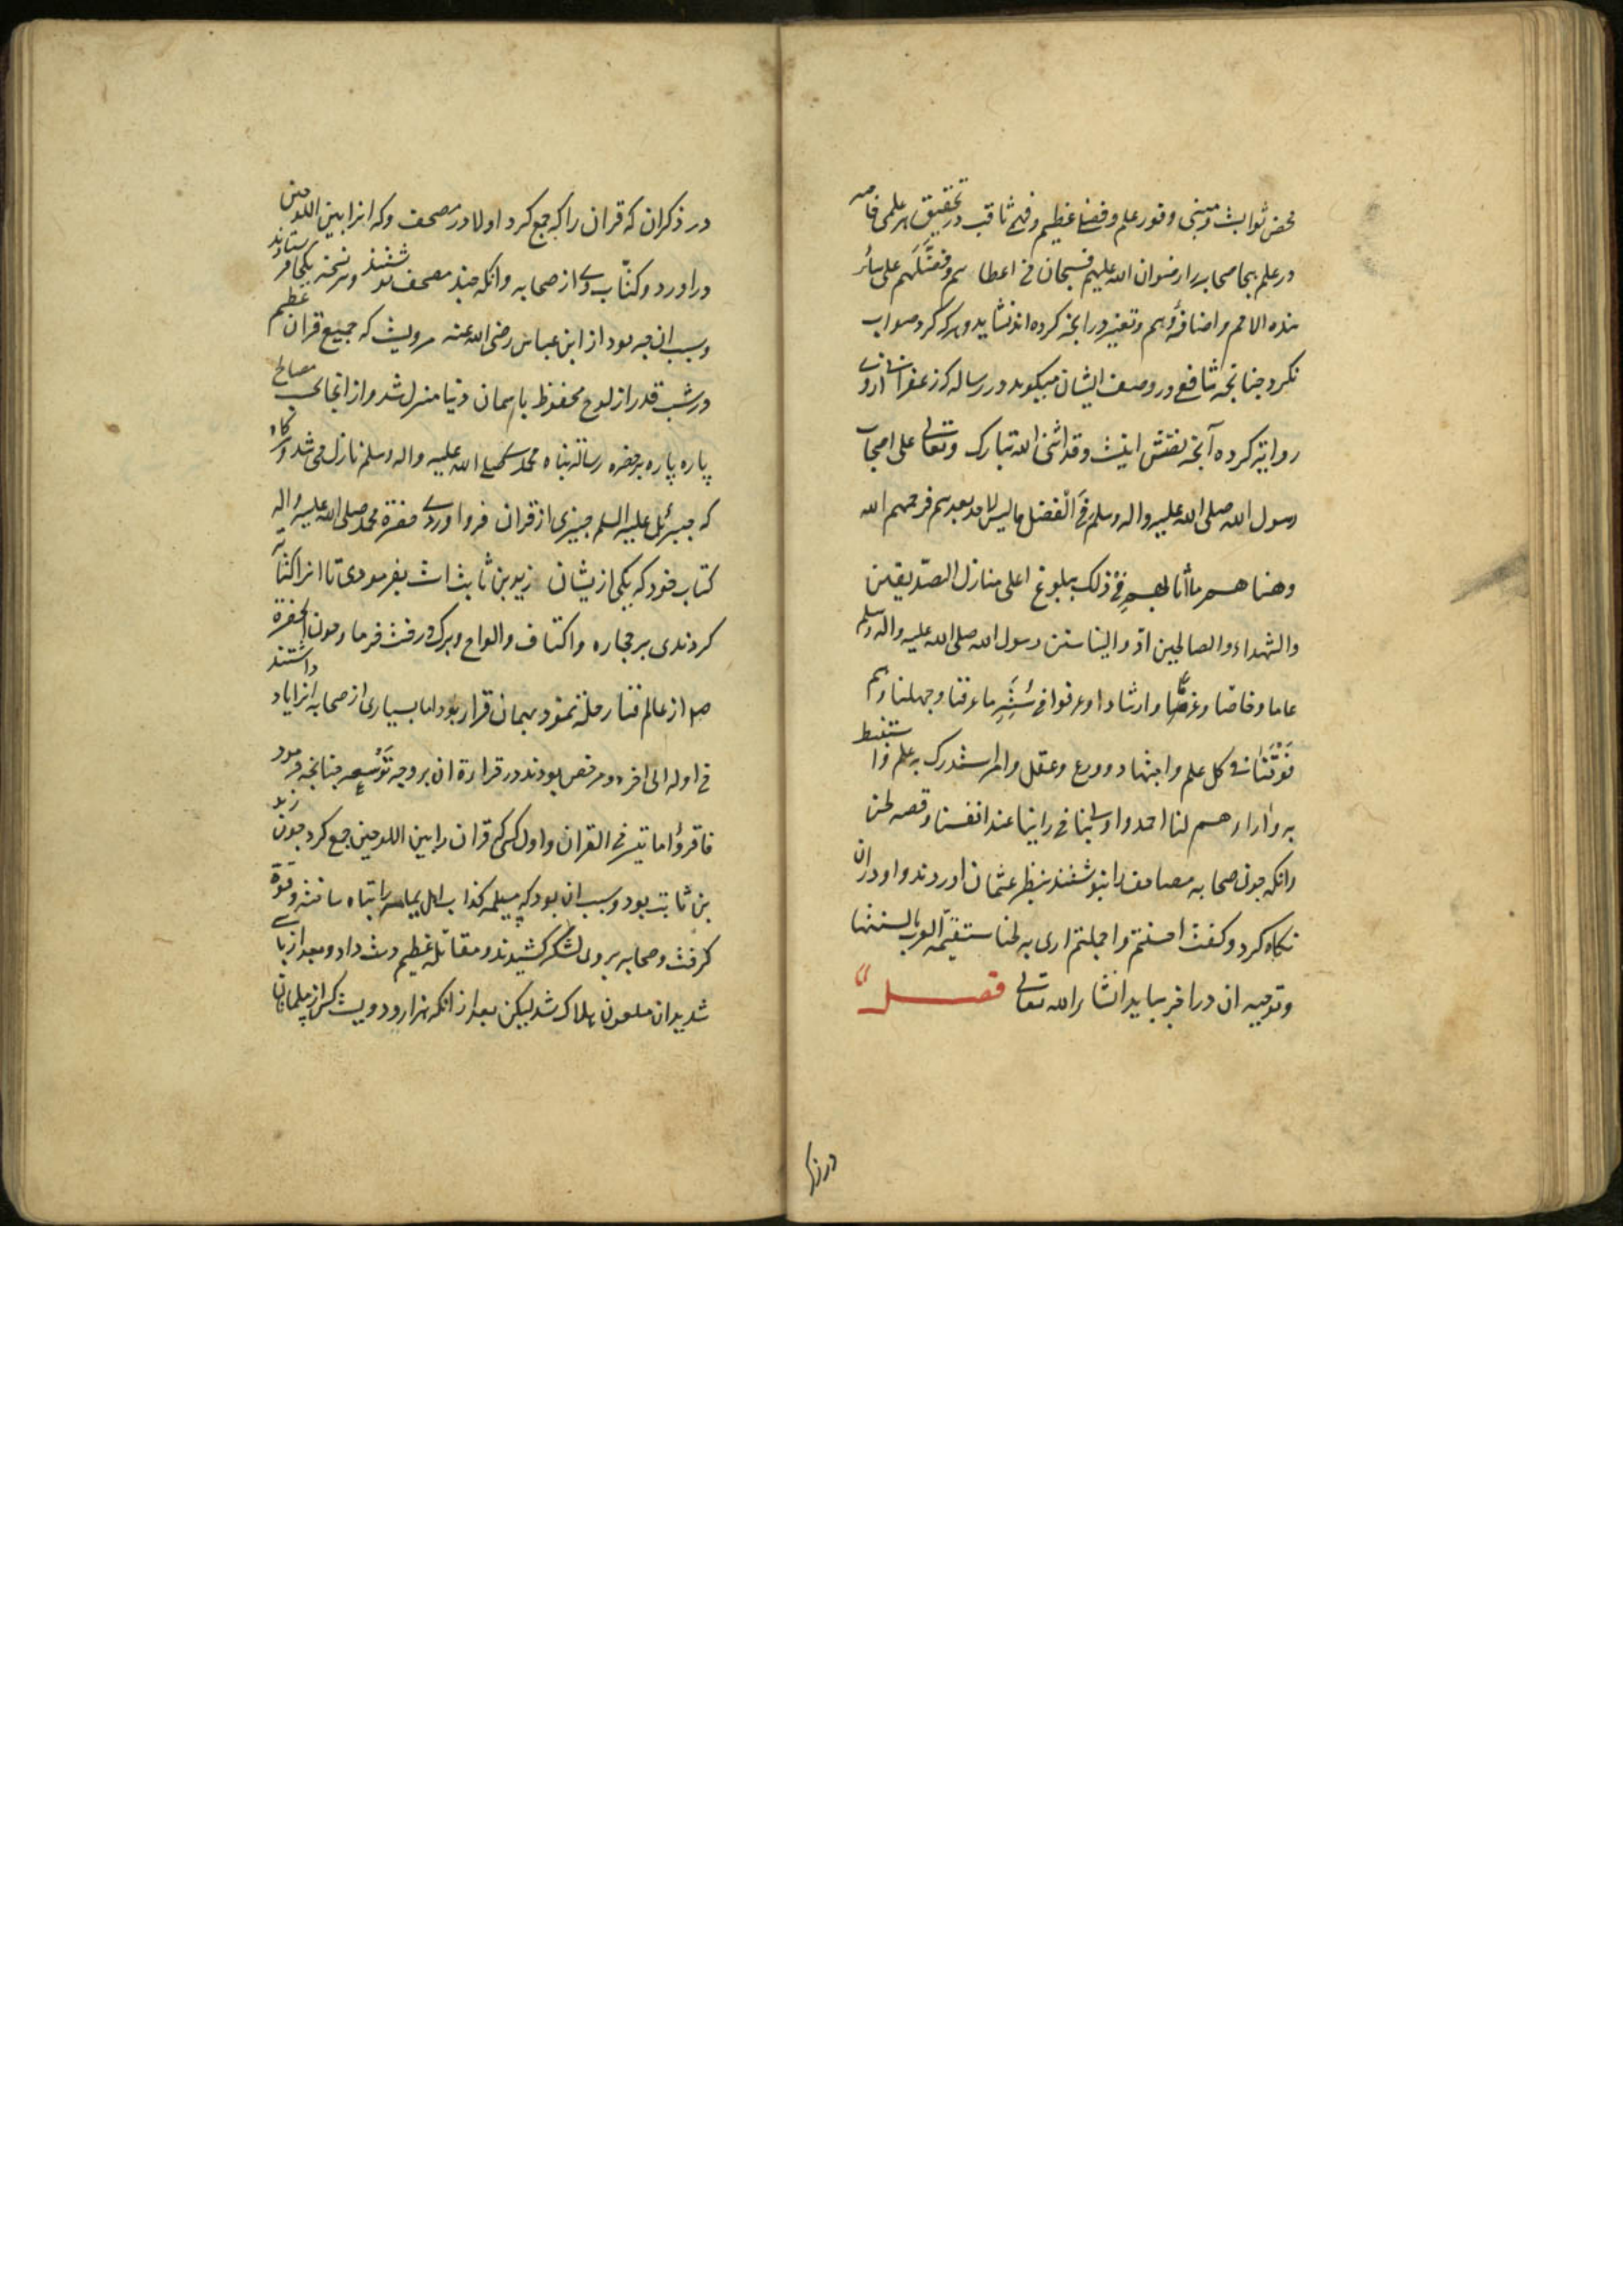 محض ثوابست و مبنی و فور علم و فضل عظیم و فهم ثاقب در تحقیق هر علمی خاصه
در علم بجا صحابه را رضوان الله علیهم فسبحان من اعطاهم و فضلهم علی سائر
هذه الامم و اضافه وهم و تغیر در انجه کرده اند نشاید و هر که کرد صواب
نکرد جنانجه شافعی در وصف ایشان میکوید در رساله که زعفرانی از وی
روایة کرده آنجه نقش اینست وقد اثنی الله تبارک وتعالی علی اصحاب
رسول الله صلی الله علیه واله وسلم فی الفضل ما لیس لاحد بعدهم فرحمهم الله
وهناهم ما أتاهم فی ذلک ببلوغ اعلی منازل الصدیقین
والشهداء والصالحین ادوا الینا سنن رسول الله صلی الله علیه واله وسلم
عاما وخاصا وعزما وارشادا وعرفوا من سننه ما عرفنا وجهلنا وهم
فوقنا فی کل علم واجتهاد وورع وعقل وامر استدرک به علم واستنبط
به واراءهم لنا احمد واولی بنا من راینا عند انفسنا و قصه لحن
وانکه جون صحابه مصاحف را بنوشتند بنظر عثمان اوردند و او دران
نکاه کرد و کفت احسنتم واجملتم اری به لحنا ستقیمه العرب بالسنتها
و توجیه ان در اخر بیاید انشاء الله تعالی فصل
در ذکر
در ذکر ان که قران را که جمع کرد اولا در مصحف و که انرا بین اللوحین
دراورد و کتاب وی از صحابه وانکه جند مصحف نوشتند و هر نسخه بکجا فرستادند
و سبب ان جه بود از ابن عباس رضی الله عنه مرویست که جمیع قران عظیم
در شب قدر از لوح محفوظ باسمان دنیا منزل شد و از انجا بحسب مصالح
پاره پاره بر حضرة رسالة پناه محمد صلی الله علیه واله وسلم نازل می شد و هر کاه
که جبرئیل علیه السلم جیزی از قران فرو اوردی حضرة محمد صلی الله علیه واله
کتاب خود که یکی ازیشان زید بن ثابت است بفرمودی تا انرا کتابة
کردندی بر حجاره و اکتاف و الواح و برک درخت خرما و جون انحضرة
صلم از عالم فنا رحلة نمود و بهمان قرار بود اما بسیاری از صحابه انرا یاد داشتند
من اوله الی اخره و مرخص بودند در قراءة ان بر وجه توسعه جنانجه فرمود
فاقرؤا ما تیسر من القران و اول کسی که قران را بین اللوحین جمع کرد جون زید
بن ثابت بود و سبب ان بود که مسیلمه کذاب اهل یمامه را تباه ساخته و قوة
کرفت و صحابه بر وی لشکر کشیدند و مقاتله عظیم دست داد و بعد از باسی
شدید ان ملعون هلاک شد لیکن بعد از انکه هزار و دویست کس از مسلمانان